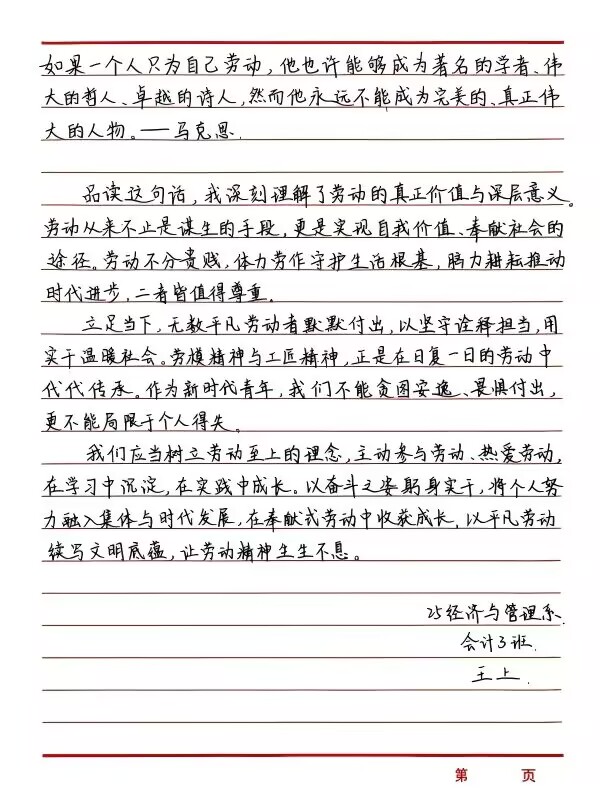 如果一个人只为自己劳动，他也许能够成为著名的学者、伟
大的哲人、卓越的诗人，然而他永远不能成为完美的、真正伟
大的人物。——马克思.
品读这句话，我深刻理解了劳动的真正价值与深层意义。
劳动从来不止是谋生的手段，更是实现自我价值、奉献社会的
途径。劳动不分贵贱，体力劳作守护生活根基，脑力耕耘推动
时代进步，二者皆值得尊重.
立足当下，无数平凡劳动者默默付出，以坚守诠释担当，用
实干温暖社会。劳模精神与工匠精神，正是在日复一日的劳动中
代代传承。作为新时代青年，我们不能贪图安逸、畏惧付出，
更不能局限于个人得失。
我们应当树立劳动至上的理念，主动参与劳动、热爱劳动，
在学习中沉淀，在实践中成长。以奋斗之姿躬身实干，将个人努
力融入集体与时代发展，在奉献式劳动中收获成长，以平凡劳动
续写文明底蕴，让劳动精神生生不息。
25经济与管理系.
会计3班.
王上.
第 页